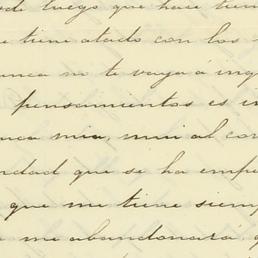 luego que hace tiem
tiene atado con los
unca no te vaya á ing
pensamientos es in
nca mia, mui al cor
rdad que se ha empe
que me tiene siemp
me abandonará q